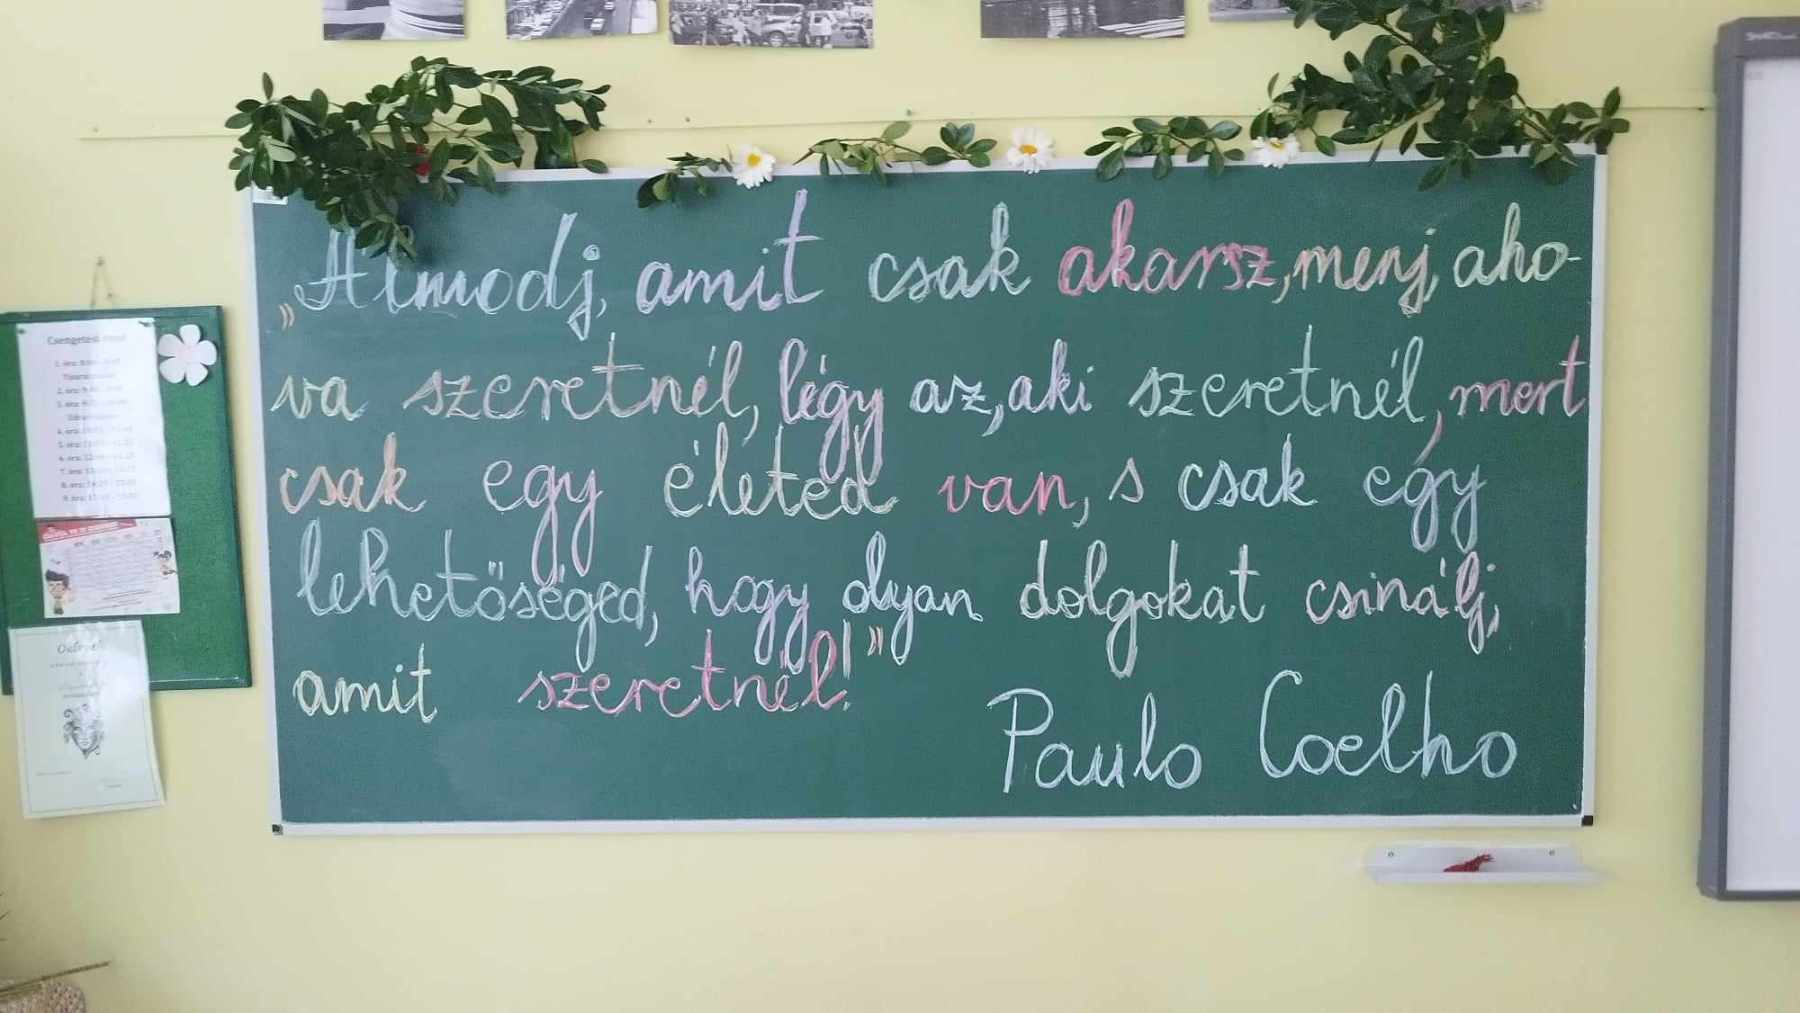 „Álmodj, amit csak akarsz, menj, aho-
va szeretnél, légy az, aki szeretnél, mert
csak egy életed van, s csak egy
lehetőséged, hogy olyan dolgokat csinálj,
amit szeretnél!"
Paulo Coelho
Csengetési rend
Oklevél